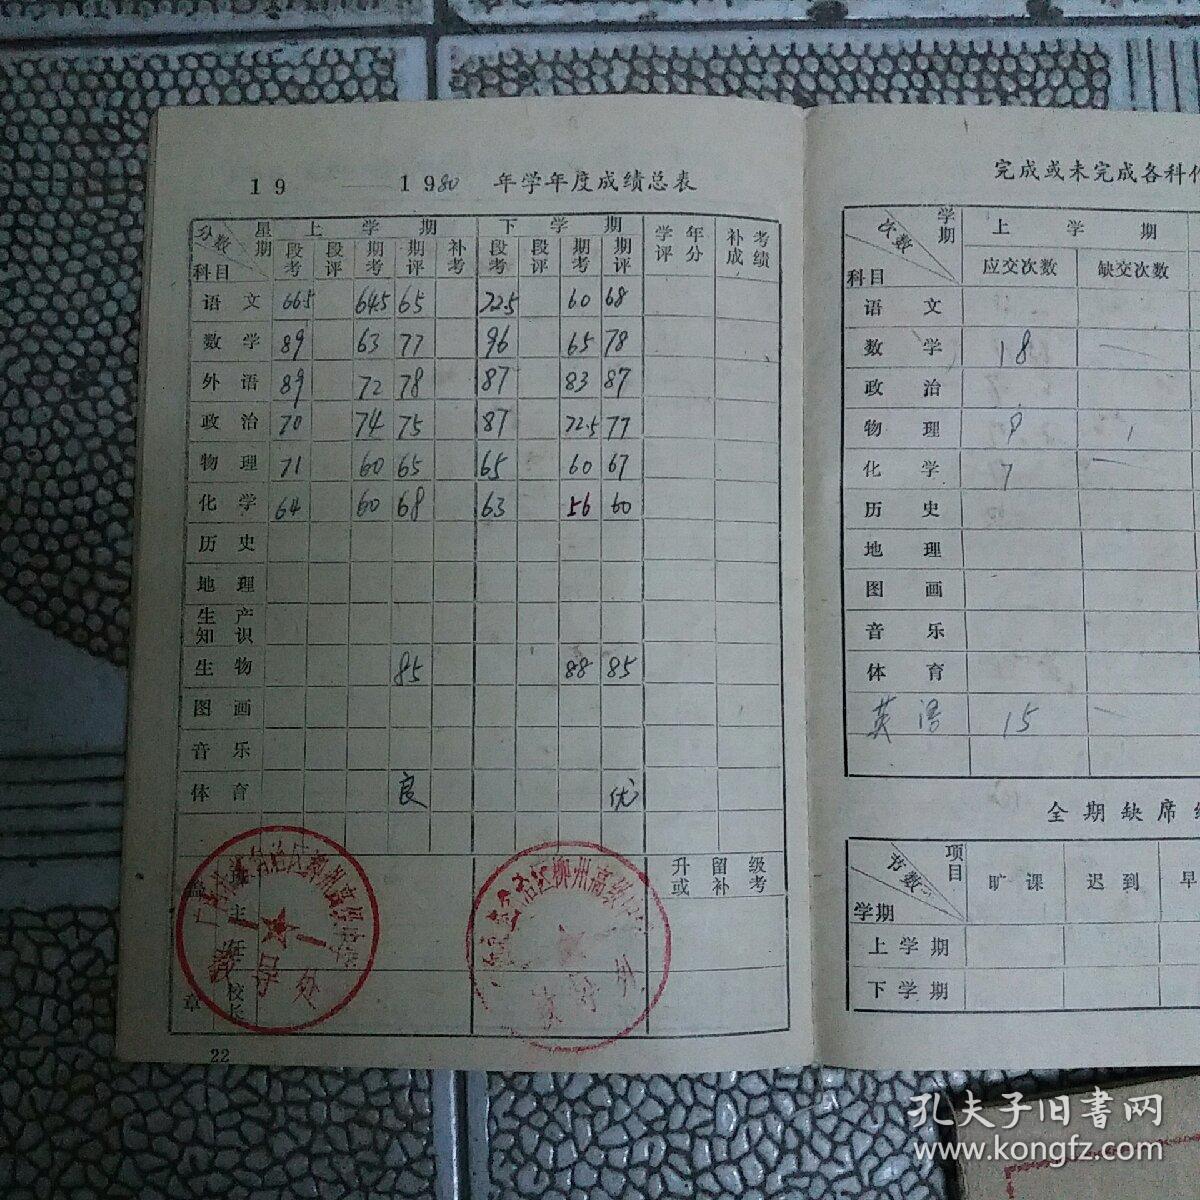 19 —— 1980 年学年度成绩总表
分数 星期 科目 上学期 下学期 学年评分 补考成绩
段考 段评 期考 期评 补考 段考 段评 期考 期评
语文 66.5 64.5 65 72.5 60 68
数学 89 63 77 96 65 78
外语 89 72 78 87 83 87
政治 70 74 75 87 72.5 77
物理 71 60 65 65 60 67
化学 64 60 68 63 56 60
历史
地理
生产知识
生物 85 88 85
图画
音乐
体育 良 优
升留级或补考
盖章
班主任
校长
广西壮族自治区柳州高级中学
教导处
自治区柳州高级中学
教导处
22
完成或未完成各科作
次数 学期 科目 上学期
应交次数 缺交次数
语文
数学 18 一
政治
物理 9 1
化学 7 一
历史
地理
图画
音乐
体育
英语 15 一
全期缺席
节数 项目 学期 旷课 迟到 早
上学期
下学期
孔夫子旧书网
www.kongfz.com